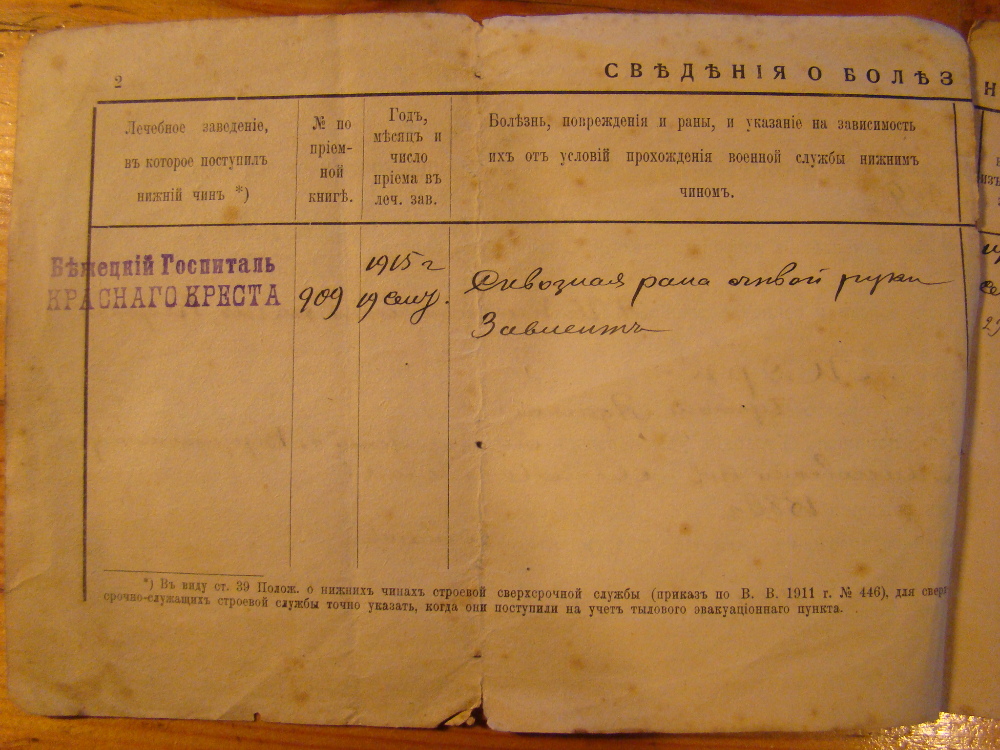 2
СВѢДѢНІЯ О БОЛѢЗ
Н
Лечебное заведеніе,
въ которое поступилъ
нижній чинъ *)
№ по
пріем-
ной
книгѣ.
Годъ,
мѣсяцъ и
число
пріема въ
леч. зав.
Болѣзнь, поврежденія и раны, и указаніе на зависимость
ихъ отъ условій прохожденія военной службы нижнимъ
чиномъ.
Бѣжецкій Госпиталь
КРАСНАГО КРЕСТА
909
1915 г
19 сент.
Сквозная рана лѣвой руки
*) Въ виду ст. 39 Полож. о нижнихъ чинахъ строевой сверхсрочной службы (приказъ по В. В. 1911 г. № 446), для сверх
срочно-служащихъ строевой службы точно указать, когда они поступили на учетъ тылового эвакуаціоннаго пункта.